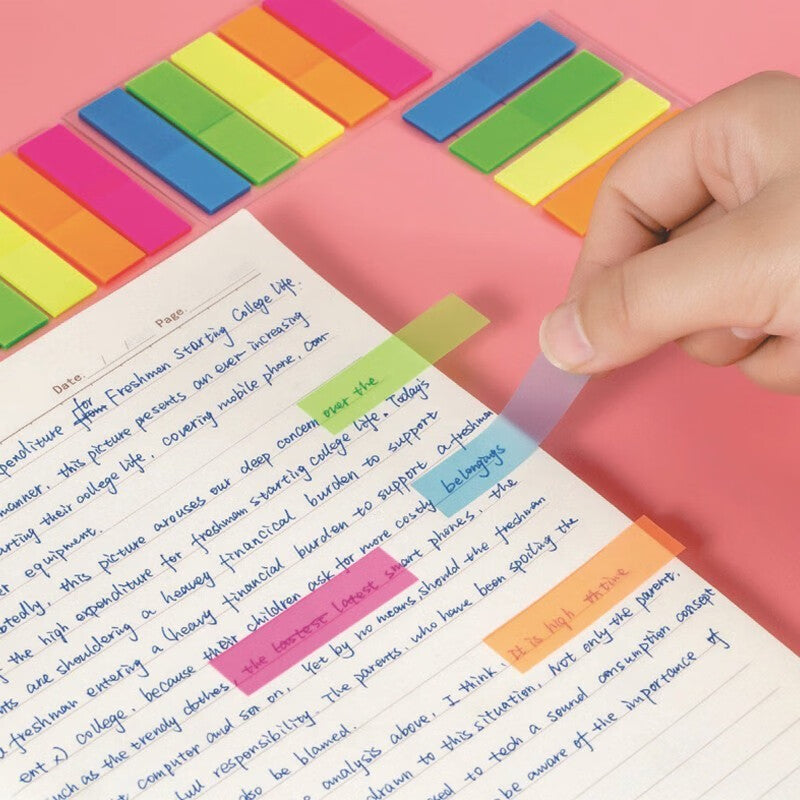 Date. / / Page.
penditure for Freshmen Starting College life.
manner, this picture presents an ever increasing
arting their college life, covering mobile phone, com
er equipment.
otedly, this picture arouses our deep concern over the
g the high expenditure for freshmen starting college life. Today's
nts are shouldering a heavy financical burden to support
a freshman entering a (heavy financial burden to support a freshman
ent x) college, because their children ask for more costly belongings
such as the trendy clothes, the lastest latest smart phones, the
t computer and so on. Yet by no means should the freshmen
full responsibility. The parents, who have been spoiling the
also be blamed.
analysis above, I think, it is high th time
drawn to this situation. Not only the parent,
sed to tech a sound consumption consept
be aware of the importance of